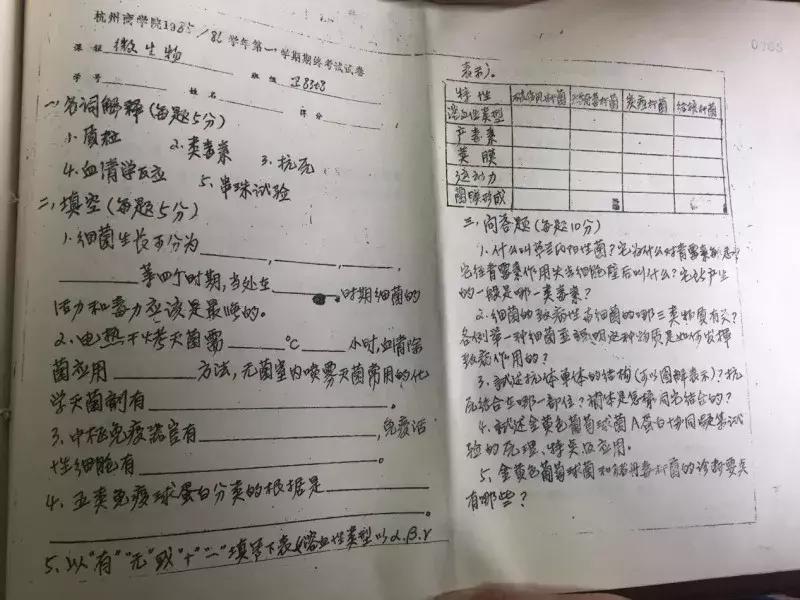 杭州商学院1985/86学年第一学期期终考试试卷
课程 微生物 班级
学号 姓名 得分
一、名词解释(每题5分)
1、质粒 2、类毒素 3、抗元
4、血清学反应 5、串珠试验
二、填空(每题5分)
1、细菌生长可分为 、 、
、 等四个时期,当处在 时期细菌的
活力和毒力应该是最强的。
2、电热干烤灭菌需 ℃ 小时,血清除
菌应用 方法,无菌室内喷雾灭菌常用的化
学灭菌剂有 。
3、中枢免疫器官有 ,免疫活
性细胞有 。
4、五类免疫球蛋白分类的根据是
。
5、以“有”“无”或“+”“-”填写下表(溶血性类型以α、β、γ
表示)。
特性 炭疽杆菌
溶血性类型
产毒素
荚膜
运动力
三、问答题(每题10分)
1、什么叫革兰氏阳性菌?它为什么对青霉素敏感?
它经青霉素作用失去细胞壁后叫什么?它能产生
的一般是哪一类毒素?
2、细菌的致病性与细菌的哪三类物质有关?
各例举一种细菌至说明这种物质是如何发挥
致病作用的?
3、试述抗体单体的结构(可以图解表示)?抗
元结合在哪一部位?补体是怎样同它结合的?
4、试述金黄色葡萄球菌A蛋白协同凝集试
验的原理、特点及应用。
5、金黄色葡萄球菌和猪丹毒杆菌的诊断要点
有哪些?